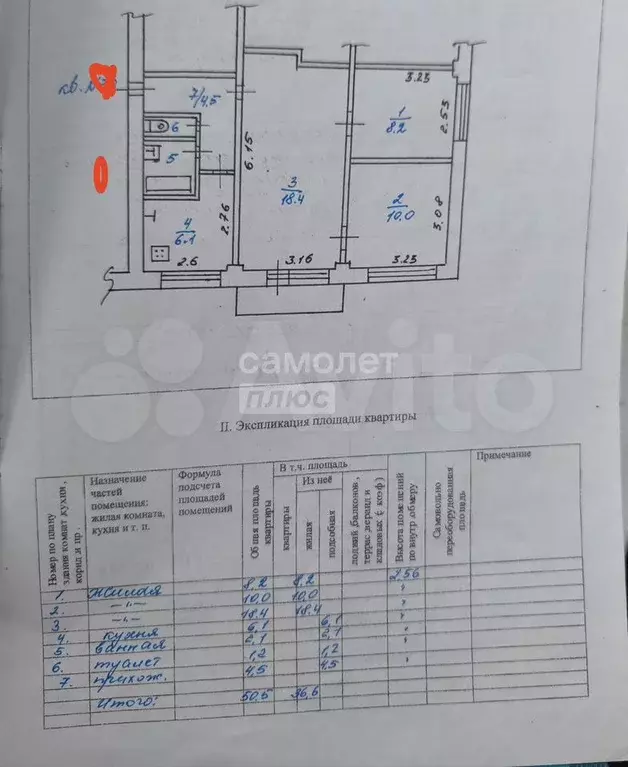 кв. №
7/4,5
3.23
1
8.2
2.53
6
5
6.15
3
18.4
2
10.0
3.08
4
6.1
2.76
2.6
3.16
3.23
самолет
плюс
Avito
II. Экспликация площади квартиры
Номер по плану здания комнат, кухни, корид и пр.
Назначение частей помещения: жилая комната, кухня и т. п.
Формула подсчета площадей помещений
Общая площадь квартиры
В т.ч. площадь
квартиры
Из неё
жилая
подсобная
лоджий, балконов, террас, веранд и кладовых (с коэф)
Высота помещений по внутр. обмеру
Самовольно переоборудованная площадь
Примечание
1. жилая 8,2 8,2 2,56
2. —"— 10,0 10,0 "
3. —"— 18,4 18,4 "
4. кухня 6,1 6,1 "
5. ванная 2,1 2,1 "
6. туалет 1,2 1,2 "
7. прихож. 4,5 4,5 "
Итого: 50,5 36,6